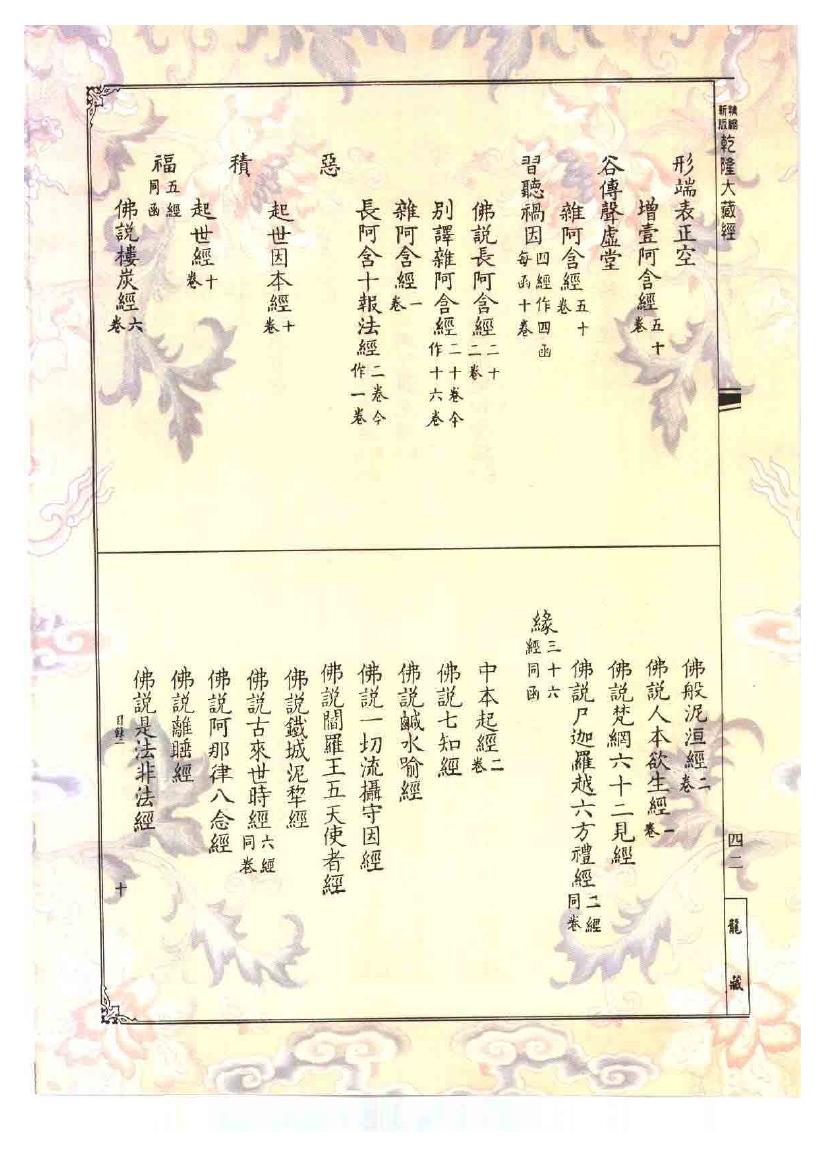 精縮新版 乾隆大藏經
形端表正空
增壹阿含經五十卷
谷傳聲虛堂
雜阿含經五十卷
習聽禍因四經作四函每函十卷
佛說長阿含經二十二卷
別譯雜阿含經二十卷今作十六卷
雜阿含經一卷
長阿含十報法經二卷今作一卷
惡
起世因本經十卷
積
起世經十卷
福五經同函
佛說樓炭經六卷
佛般泥洹經二卷
佛說人本欲生經一卷
佛說梵網六十二見經
佛說尸迦羅越六方禮經二經同卷
緣三十六經同函
中本起經二卷
佛說七知經
佛說鹹水喻經
佛說一切流攝守因經
佛說閻羅王五天使者經
佛說鐵城泥犂經
佛說古來世時經六經同卷
佛說阿那律八念經
佛說離睡經
佛說是法非法經
目錄二
十
四二
龍藏